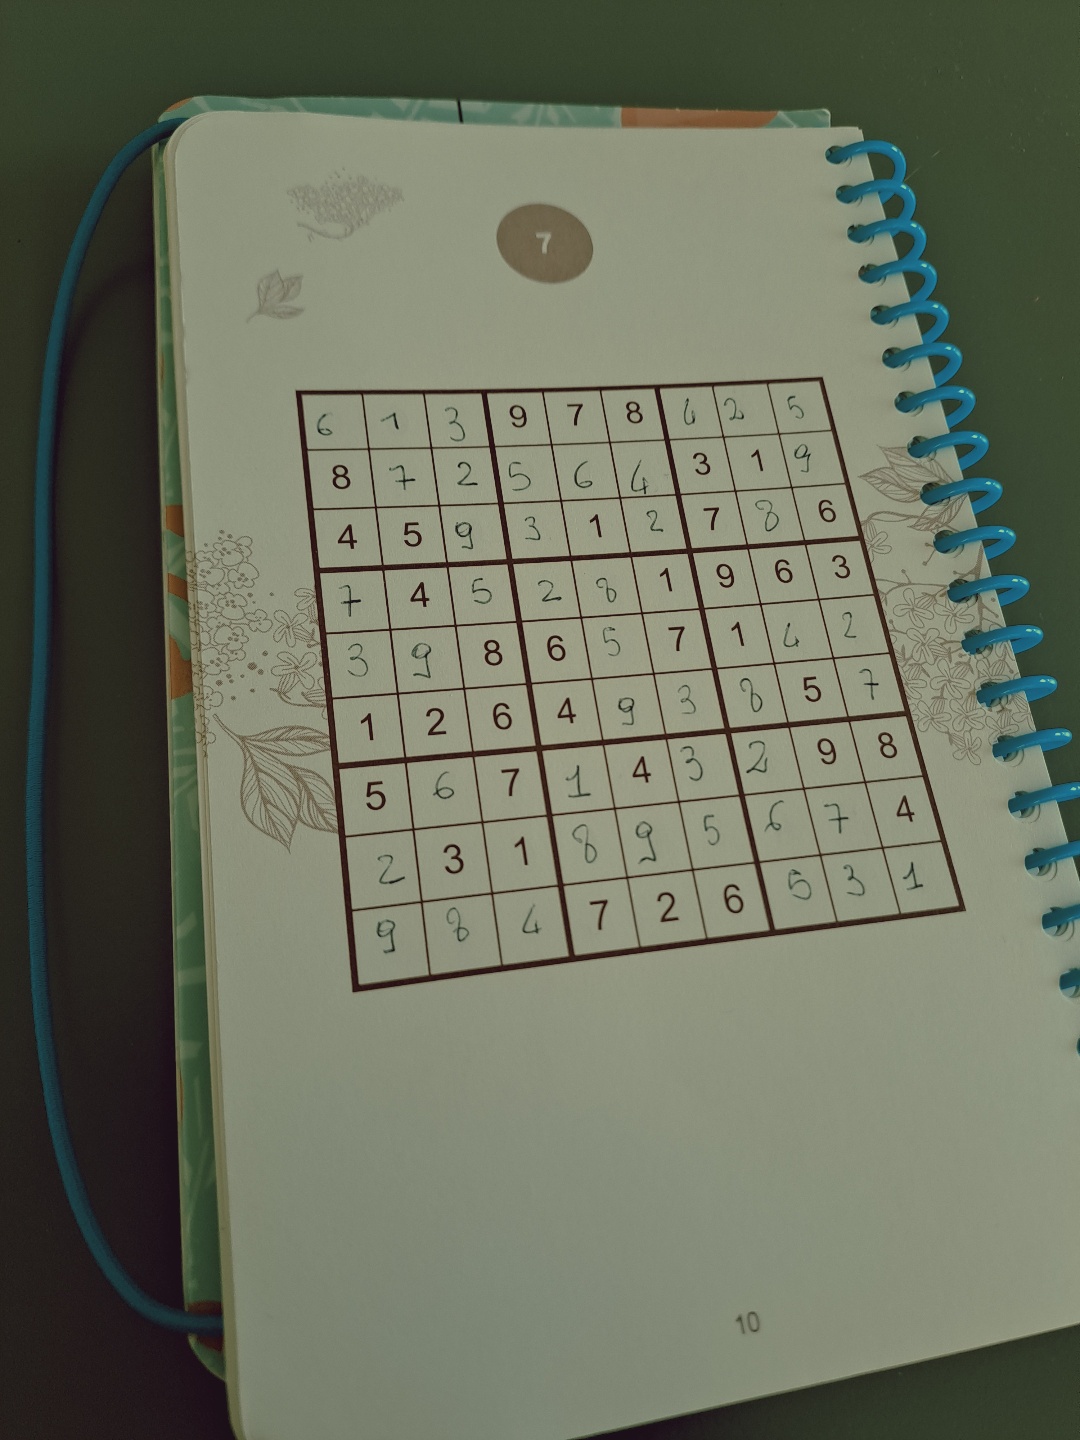 7
6 1 3 9 7 8 4 2 5
8 7 2 5 6 4 3 1 9
4 5 9 3 1 2 7 8 6
7 4 5 2 8 1 9 6 3
3 9 8 6 5 7 1 4 2
1 2 6 4 9 3 8 5 7
5 6 7 1 4 3 2 9 8
2 3 1 8 9 5 6 7 4
9 8 4 7 2 6 5 3 1
10